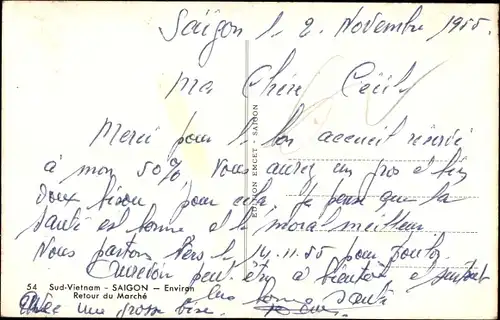 Saïgon le 2 Novembre 1955
Ma Chère Cécile
Merci pour le bon accueil réservé
à mon 50% Vous aurez un gros et bien
doux bisou pour cela. Je pense que la
santé est bonne et le moral meilleur
Nous partons vers le 14.11.55 pour
Aurevoir peut être à bientôt et surtout
bonne santé
Avec une grosse bise.
EDITION EMCET - SAIGON
54 Sud-Vietnam - SAIGON — Environ
Retour du Marché